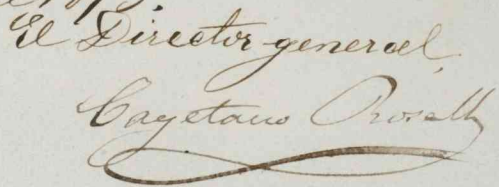 El Director general,
Cayetano Rosell